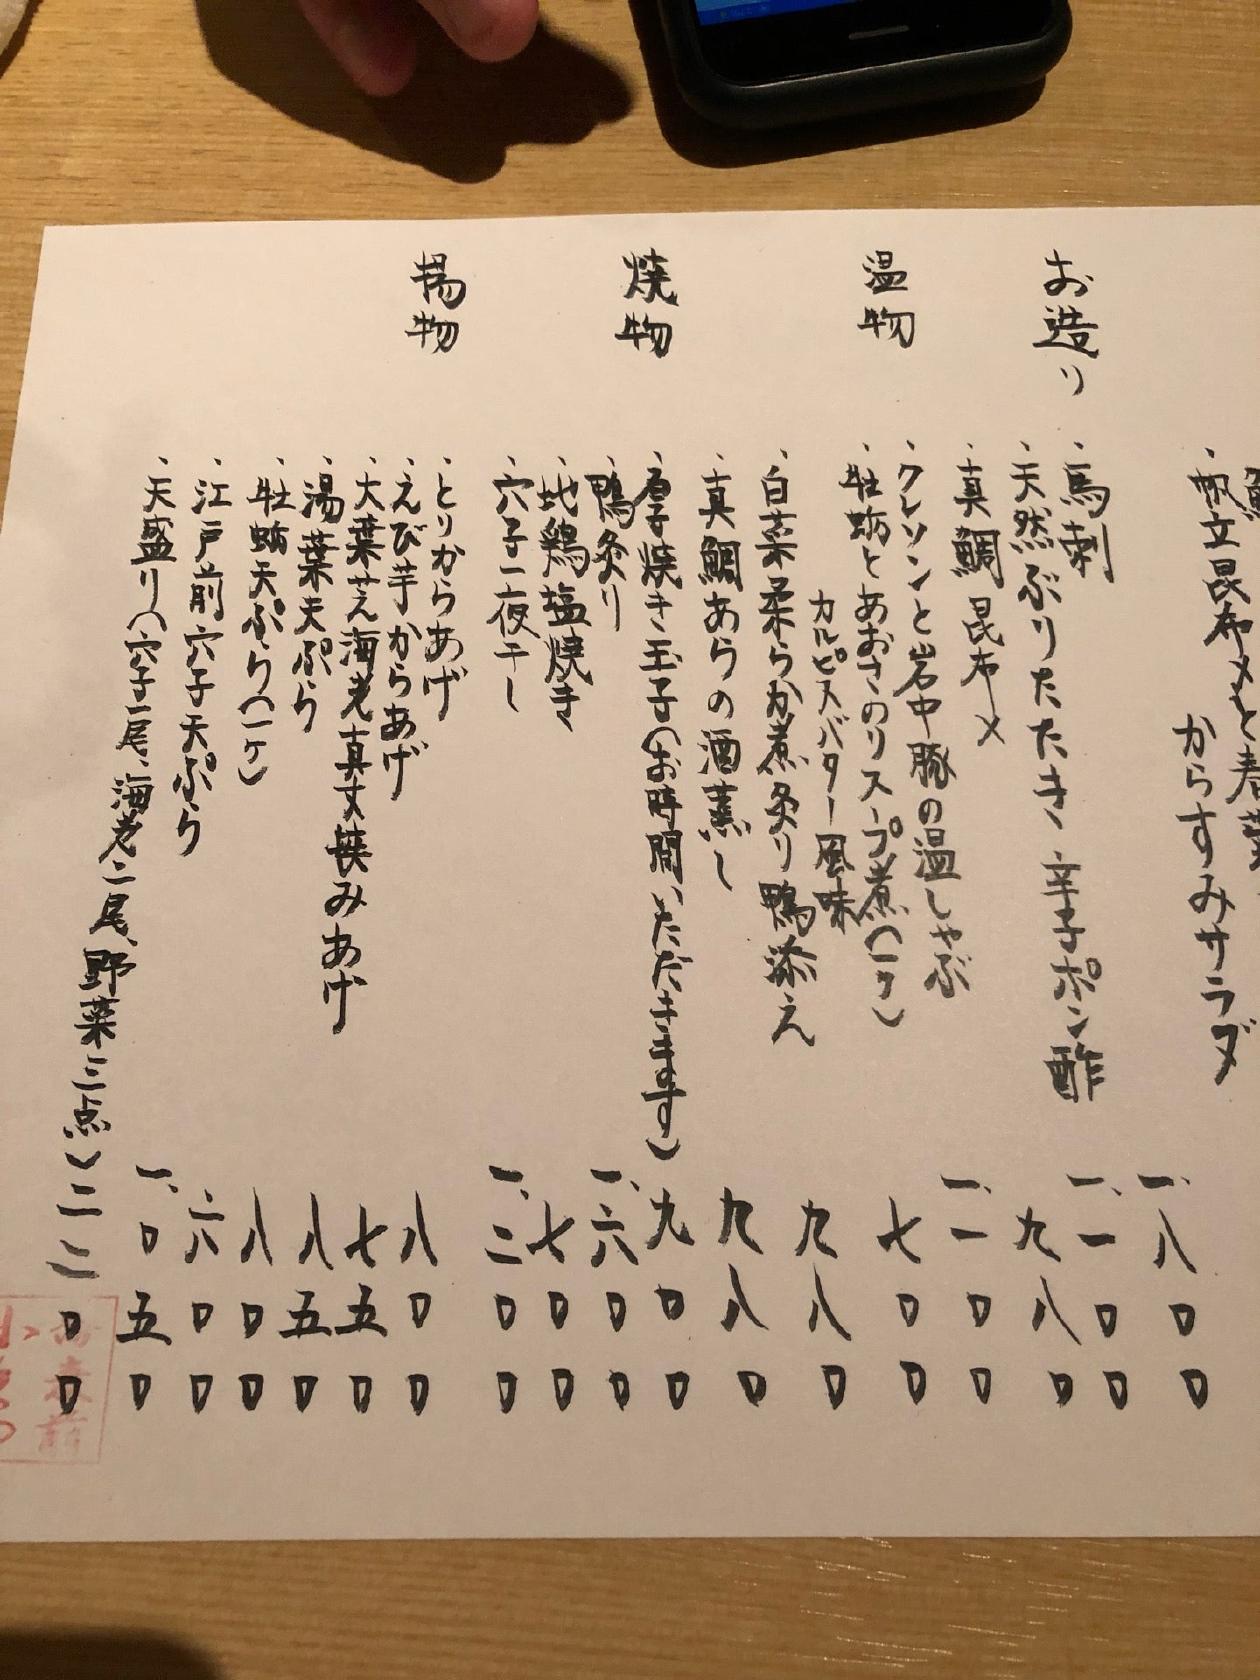 ・帆立昆布〆と春菊
からすみサラダ
お造り
・馬刺 一、八〇〇
・天然ぶりたたき、辛子ポン酢 一、一〇〇
・真鯛昆布〆 九八〇
温物
・クレソンと岩中豚の温しゃぶ 一、一〇〇
・牡蛎とあおさのりスープ煮(一ケ) 七〇〇
カルピスバター風味
・白菜柔らか煮炙り鴨添え 九八〇
・真鯛あらの酒蒸し 九八〇
焼物
・厚焼き玉子(お時間いただきます) 九〇〇
・鴨炙り 一、六〇〇
・地鶏塩焼き 七〇〇
・穴子一夜干し 一、二〇〇
揚物
・とりからあげ 八〇〇
・えび芋からあげ 七五〇
・大葉芝海老真丈挟みあげ 八五〇
・湯葉天ぷら 八〇〇
・牡蛎天ぷら(一ケ) 六〇〇
・江戸前穴子天ぷら 一、〇五〇
・天盛り(穴子一尾、海老二尾、野菜三点) 二二〇〇